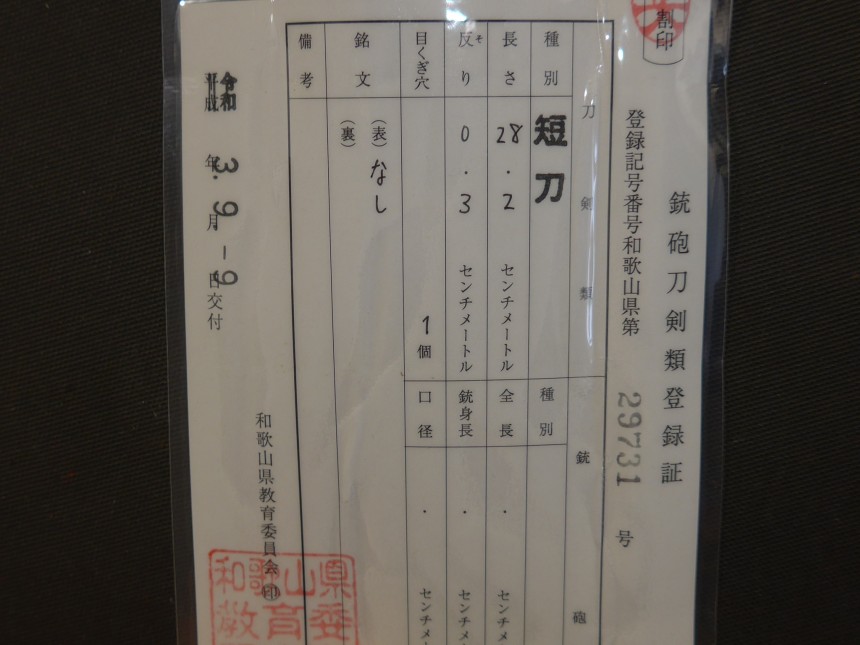 割印
銃砲刀剣類登録証
登録記号番号和歌山県第 29731 号
刀剣類
銃砲
種別 短刀
種別
長さ 28.2 センチメートル
全長 . センチメ
反り そ 0.3 センチメートル
銃身長 . センチメ
目くぎ穴 1個
口径 . センチメ
銘文 (表) なし
(裏)
備考
平成 令和 3年 9月 -9日交付
和歌山県教育委員会 印
和歌山県
教育委